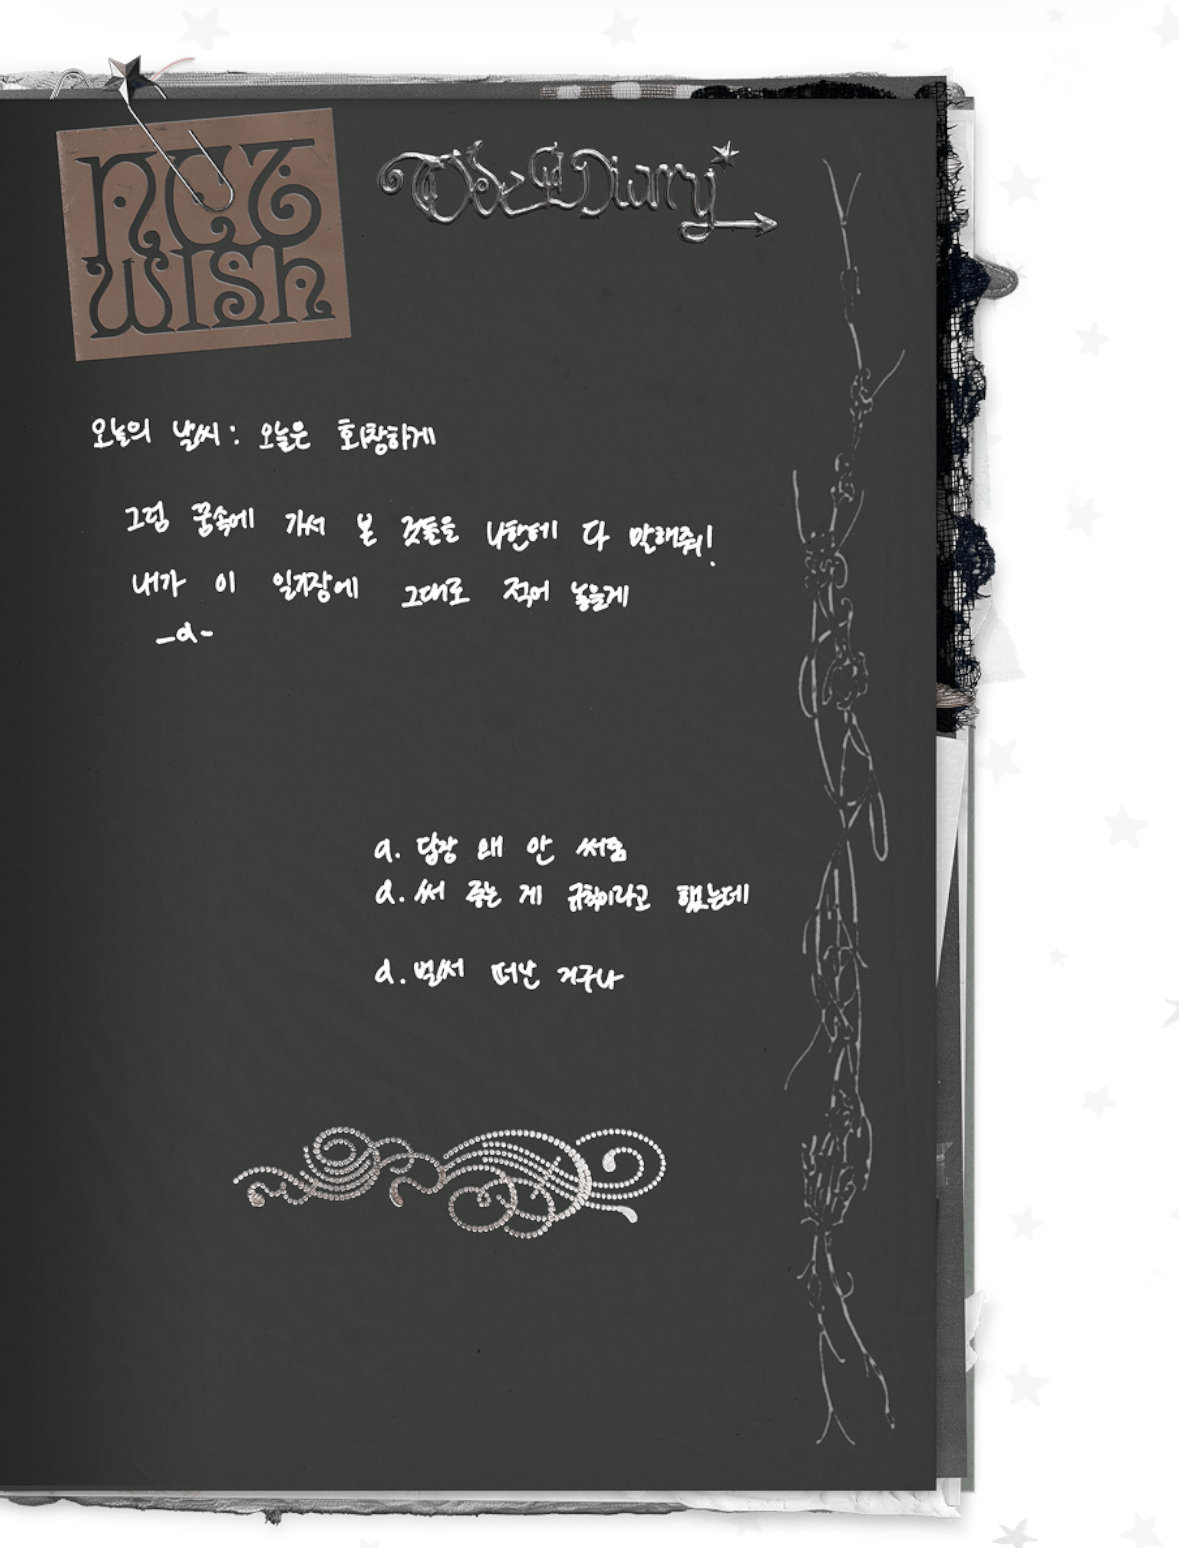 NCT
WISH
Ode Diary
오늘의 날씨 : 오늘은 화창하게
그럼 꿈속에 가서 본 것들을 나한테 다 말해줘!
내가 이 일기장에 그대로 적어 놓을게
-a-
a. 답장 왜 안 써줌
a. 써 주는 게 규칙이라고 했는데
a. 벌써 떠난 거구나